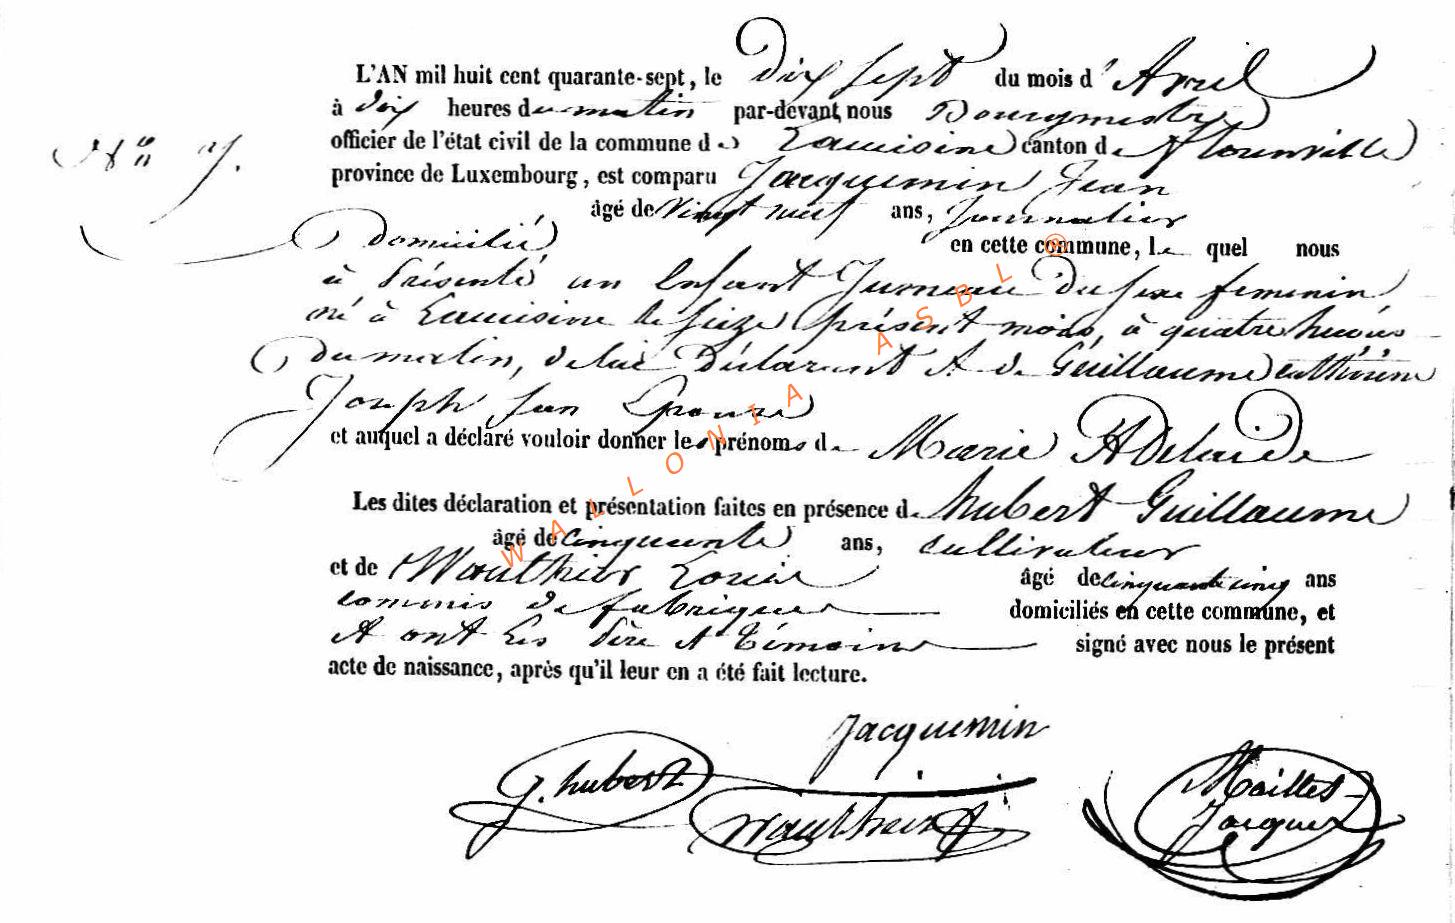 L'AN mil huit cent quarante-sept, le Dix sept du mois d' Avril
à dix heures du matin par-devant nous Bourgmestre
N° 7.
officier de l'état civil de la commune de Lacuisine canton de Florenville
province de Luxembourg, est comparu Jacquemin Jean
âgé de vingt neuf ans, Journalier
Domicilié en cette commune, le quel nous
à Présenté un Enfant Jumeau du sexe feminin
né à Lacuisine le seize présent mois, à quatre heures
Du matin, de lui Déclarant et de Guillaume Cathérine
Joseph son Epouse
et auquel a déclaré vouloir donner les prénoms de Marie Adelaide
Les dites déclaration et présentation faites en présence de hubert Guillaume
âgé de Cinquante ans, cultivateur
et de Wauthier Louis âgé de cinquante cinq ans
commis de fabrique domiciliés en cette commune, et
et ont les Père et Témoins signé avec nous le présent
acte de naissance, après qu'il leur en a été fait lecture.
Jacquemin
g. hubert
Wauthier
Maillet
Jacques
WALLONIA ASBL ®